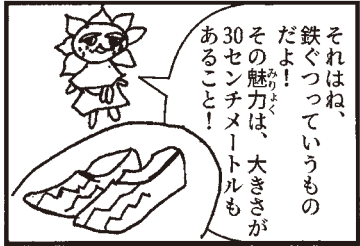 それはね、
鉄ぐつっていうもの
だよ！
その魅力は、大きさが
みりょく
30センチメートルも
あること！